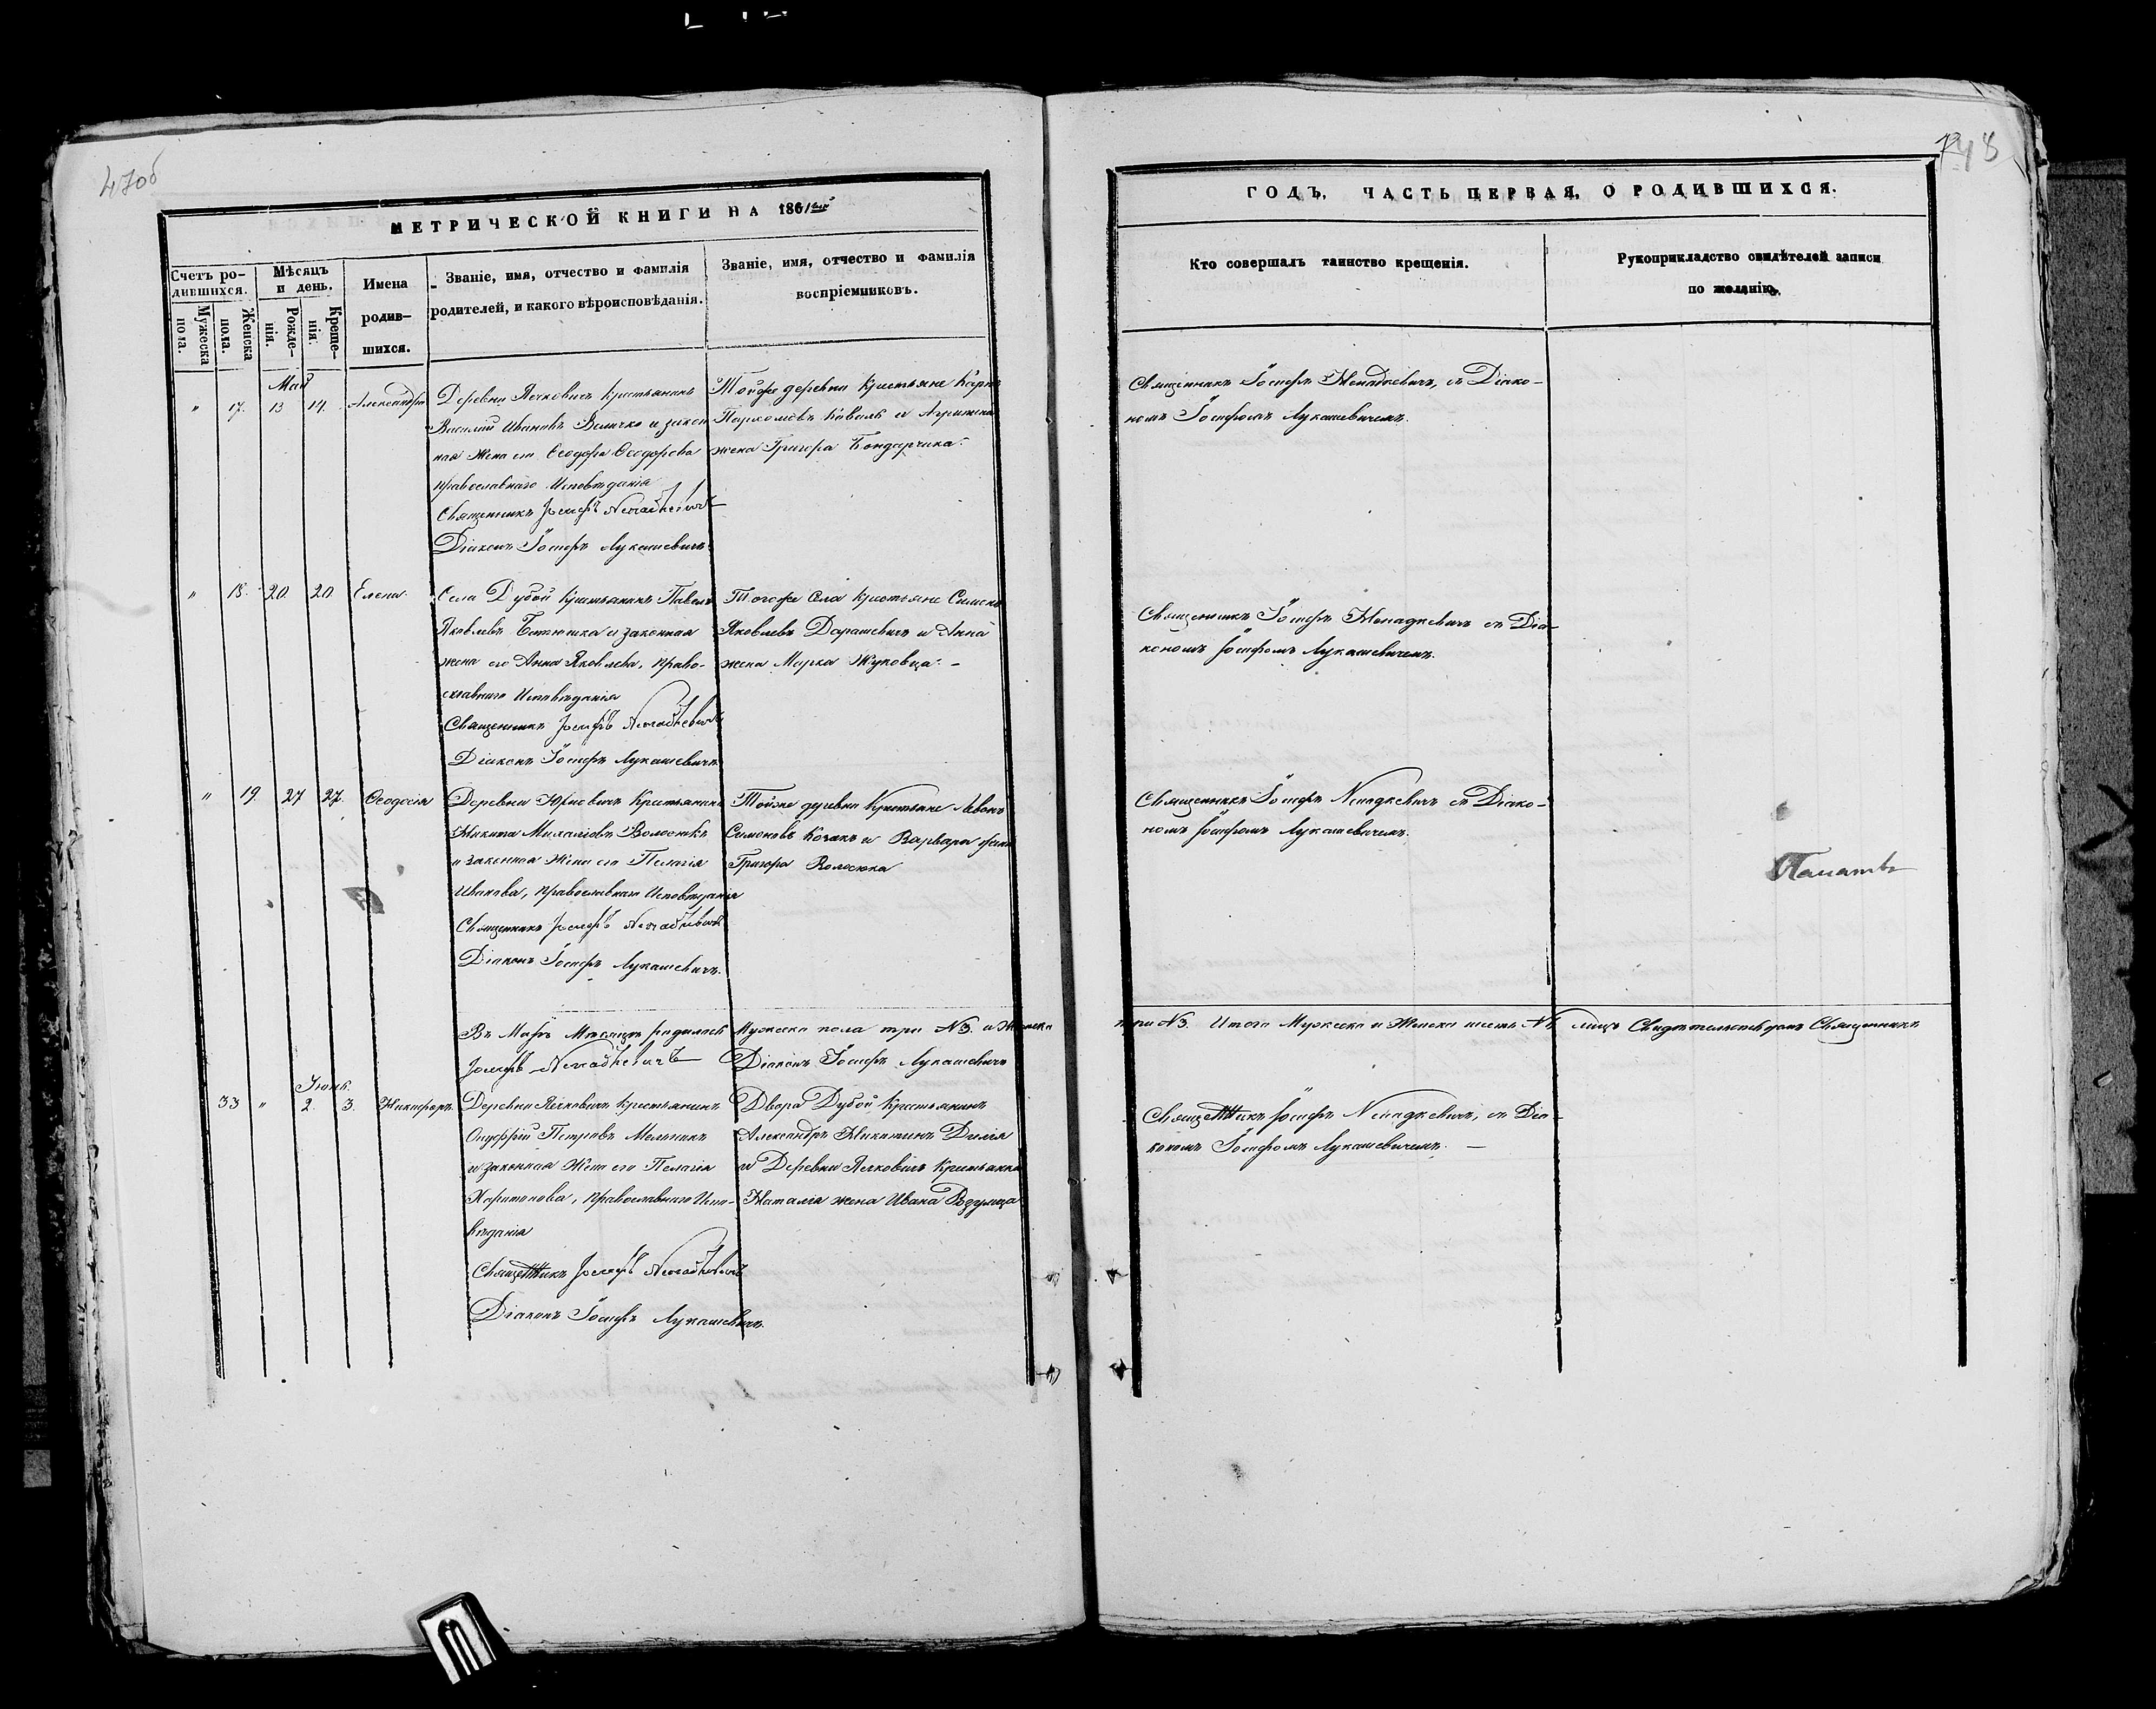 47об
МЕТРИЧЕСКОЙ КНИГИ НА 1861ый
Счетъ ро-
дившихся.
Мужеска
пола.
Женска
пола.
Мѣсяцъ
и день.
Рожде-
нія.
Креще-
нія.
Имена
родив-
шихся.
Званіе, имя, отчество и фамилія
родителей, и какого вѣроисповѣданія.
Званіе, имя, отчество и фамилія
воспріемниковъ.
Май
" 17. 13 14. Александра
Деревни Ячковичъ Крестьянинъ
Василій Ивановъ Величко и закон
ная жена его Ѳеодора Ѳеодорова
православнаго Исповѣданія
Священникъ Іосифъ Ненадкевичъ
Діаконъ Іосифъ Лукашевичъ.
Тойже деревни Крестьяне Карпъ
Пархомовъ Коваль и Агрипина
жена Григора Бондарчика.
" 18. 20. 20. Елена.
Села Дубой Крестьянинъ Павелъ
Яковлевъ и законная
жена его Анна Яковлева, право-
славнаго Исповѣданія
Священникъ Іосифъ Ненадкевичъ
Діаконъ Іосифъ Лукашевичъ
Тогоже Села Крестьяне Симонъ
Яковлевъ Дорашевичъ и Анна
жена Марка Жуковца. –
" 19. 27 27. Ѳеодосія
Деревни Юрновичъ Крестьянинъ
Никита Михаловъ Волосюкъ
и законная Жена его Пелагія
Иванова, православнаго Исповѣданія
Священникъ Іосифъ Ненадкевичъ
Діаконъ Іосифъ Лукашевичъ.
Тойже деревни Крестьяне Леванъ
Симоновъ Козакъ и Варвара жена
Григора Волосюка
Въ Маѣ Мѣсяцѣ родилось Мужеска пола три №3. и Женска
Іосифъ Ненадкевичъ Діаконъ Іосифъ Лукашевичъ
Іюнь.
33 " 2. 3. Никифоръ.
Деревни Ячковичъ Крестьянинъ
Онуфрій Петровъ Мельникъ
и законная Жена его Пелагія
Харитонова, православнаго Испо-
вѣданія
Священникъ Іосифъ Ненадкевичъ
Діаконъ Іосифъ Лукашевичъ.
Двора Дубой Крестьянинъ
Александръ Никитинъ
и Деревни Ячковичъ Крестьянка
Наталія жена Ивана
48
ГОДЪ, ЧАСТЬ ПЕРВАЯ, О РОДИВШИХСЯ.
Кто совершалъ таинство крещенія.
Рукоприкладство свидѣтелей записи
по желанію.
Священникъ Іосифъ Ненадкевичъ, съ Діако-
номъ Іосифомъ Лукашевичемъ.
Священникъ Іосифъ Ненадкевичъ съ Діа-
кономъ Іосифомъ Лукашевичемъ.
Священникъ Іосифъ Ненадкевичъ съ Діако-
номъ Іосифомъ Лукашевичемъ.
три №3. Итого Мужеска и Женска шесть лицъ Свидѣтельствуемъ Священникъ
Священникъ Іосифъ Ненадкевичъ, съ Діа-
кономъ Іосифомъ Лукашевичемъ. –